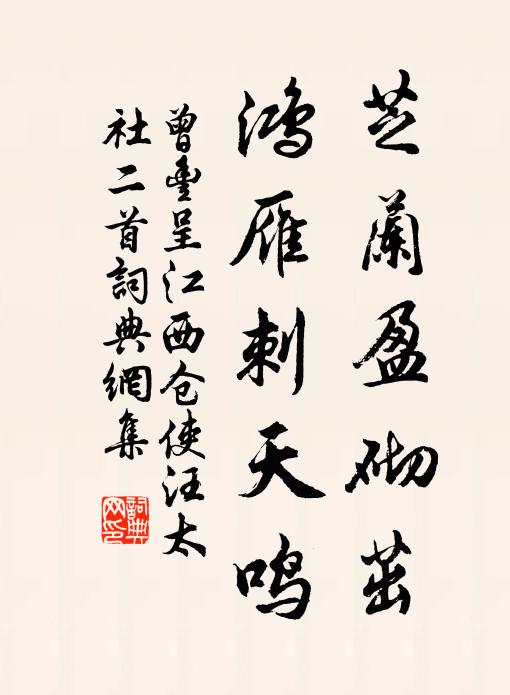 芝蘭盈砌茁
鴻雁刺天鳴
曾豐呈江西仓使汪太
社二首詞典網集
詞典網印